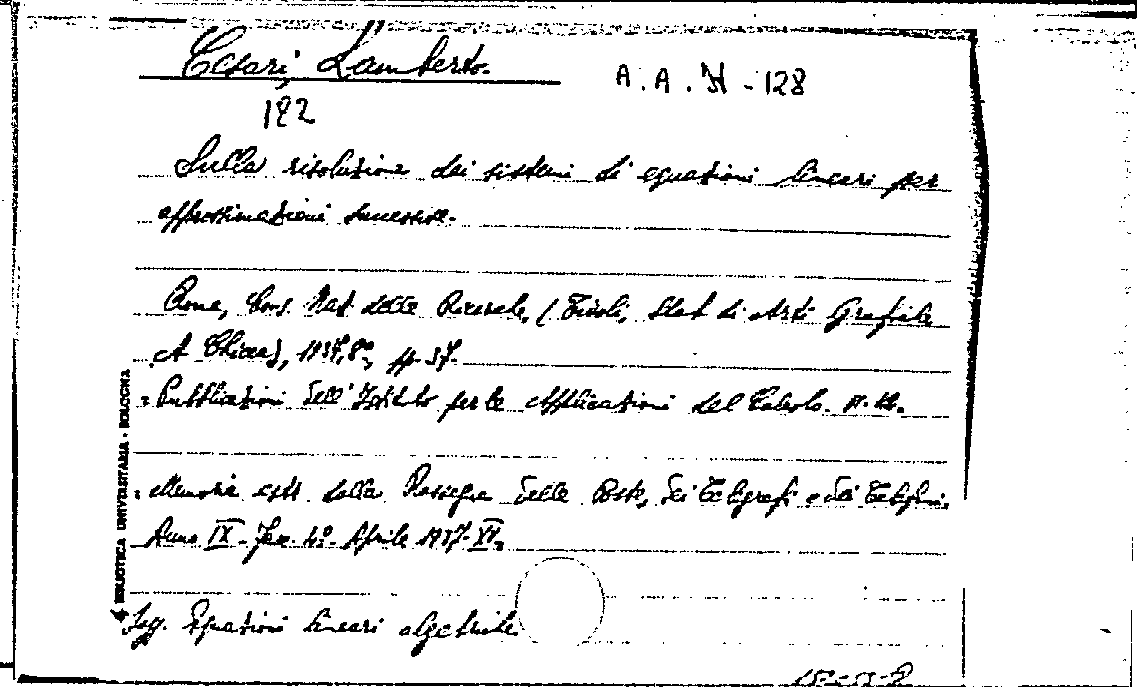 Cesari, Lamberto.
A. A. H - 128
122
Sulla risoluzione dei sistemi di equazioni lineari per
approssimazioni successive.
Roma, Cons. Naz. delle Ricerche, (Tivoli, Stab. di Arti Grafiche
A. Chicca), 1937, 8°, pp. 37.
Pubblicazioni dell'Istituto per le Applicazioni del Calcolo. N.
Memoria estr. dalla Rassegna delle Poste, dei Telegrafi e dei Telefoni,
Anno IX - Fasc. 4° - Aprile 1937-XV.
BIBLIOTECA UNIVERSITARIA - BOLOGNA
Sog. Equazioni lineari algebriche